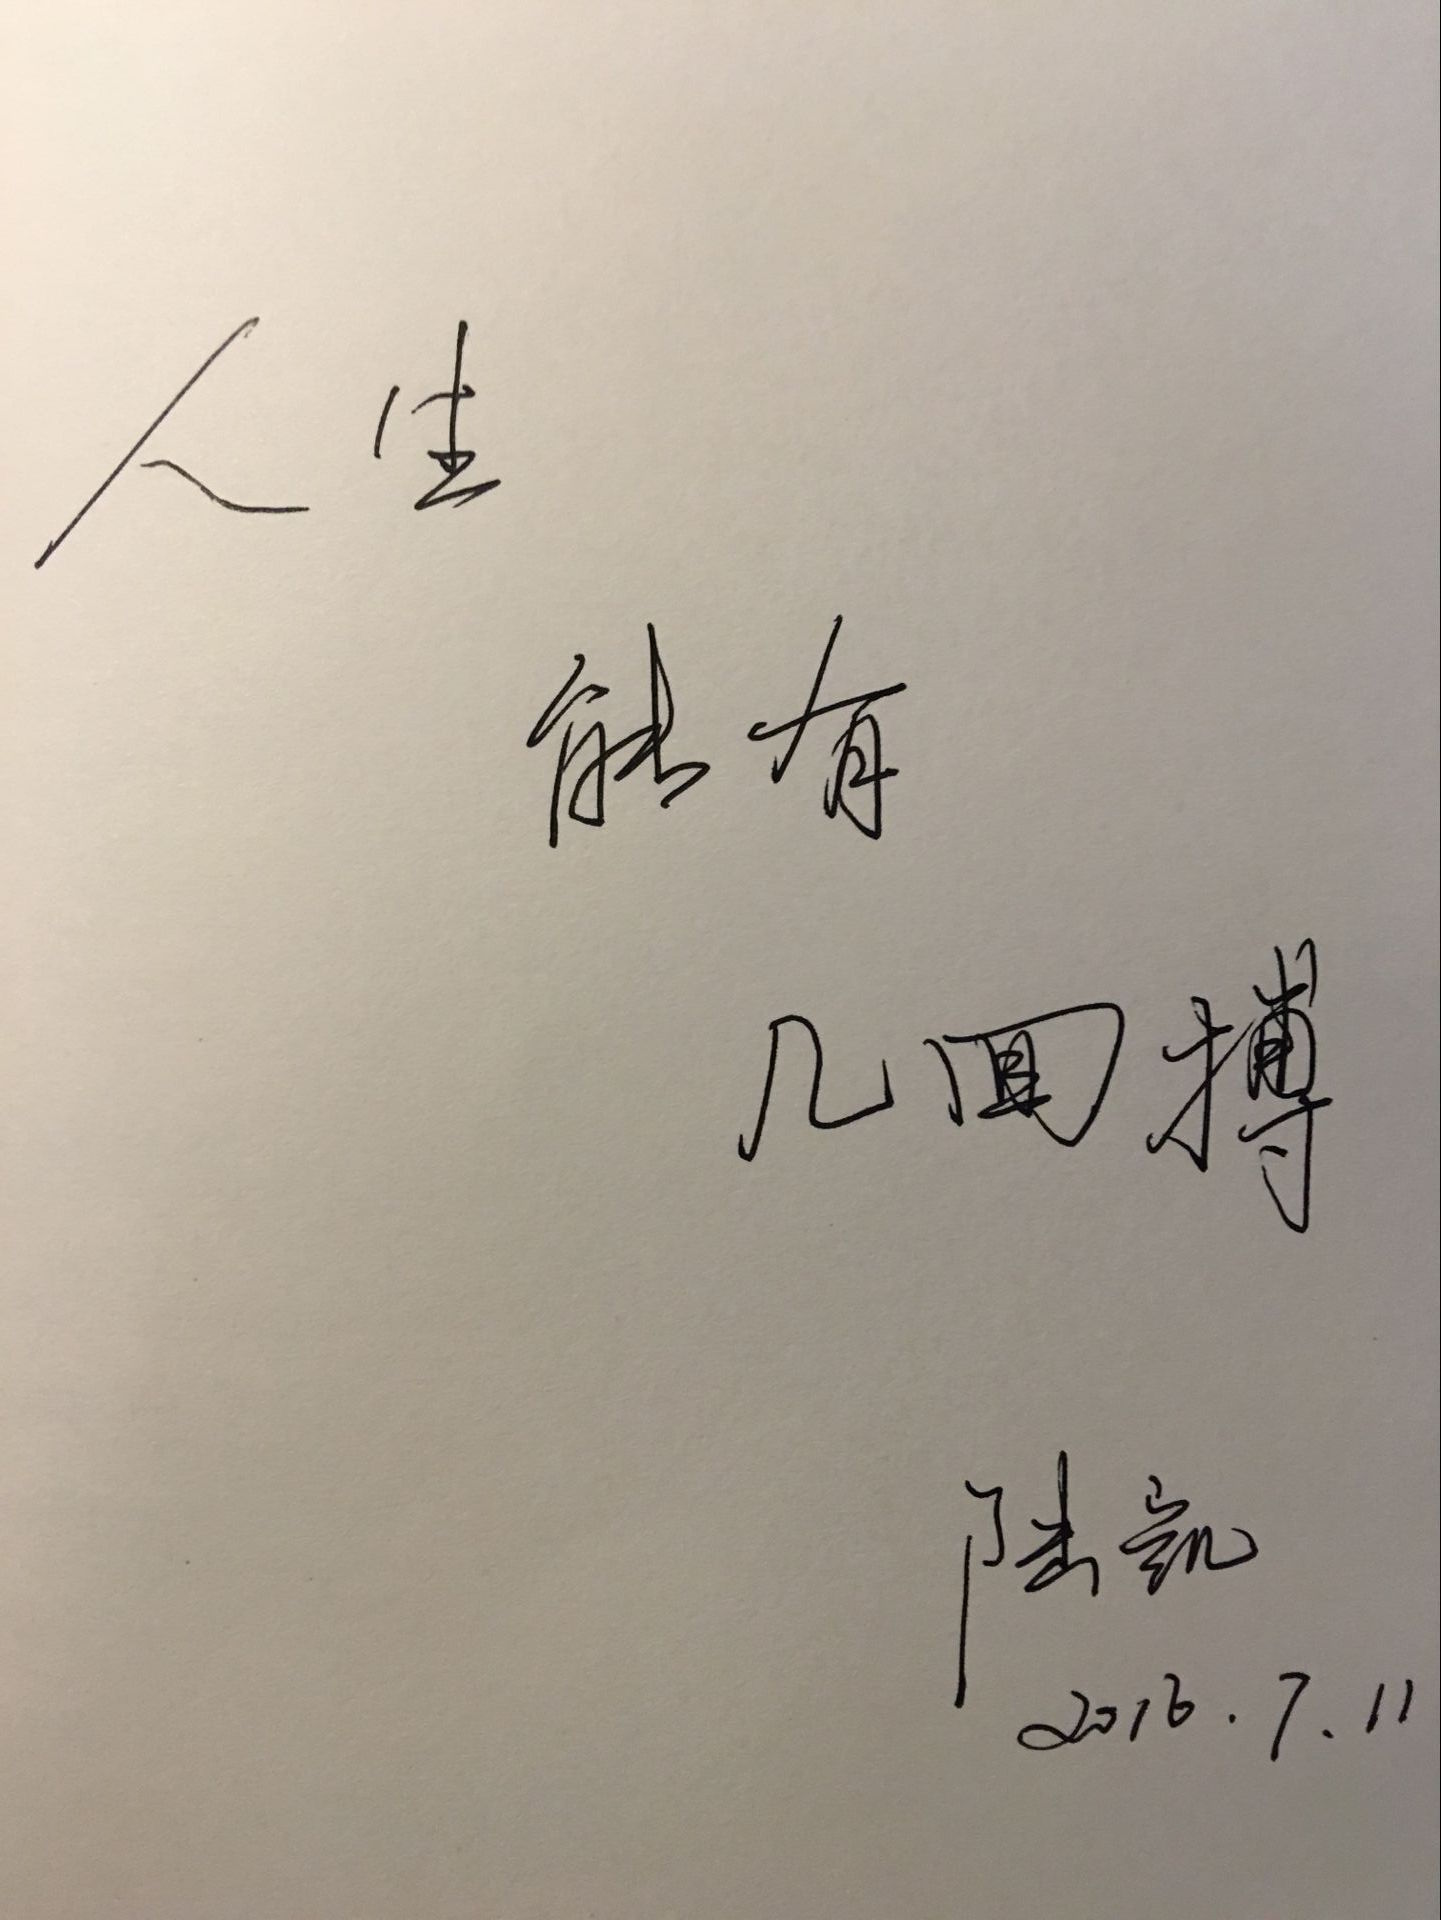 人生
能有
几回搏
陆凯
2016.7.11